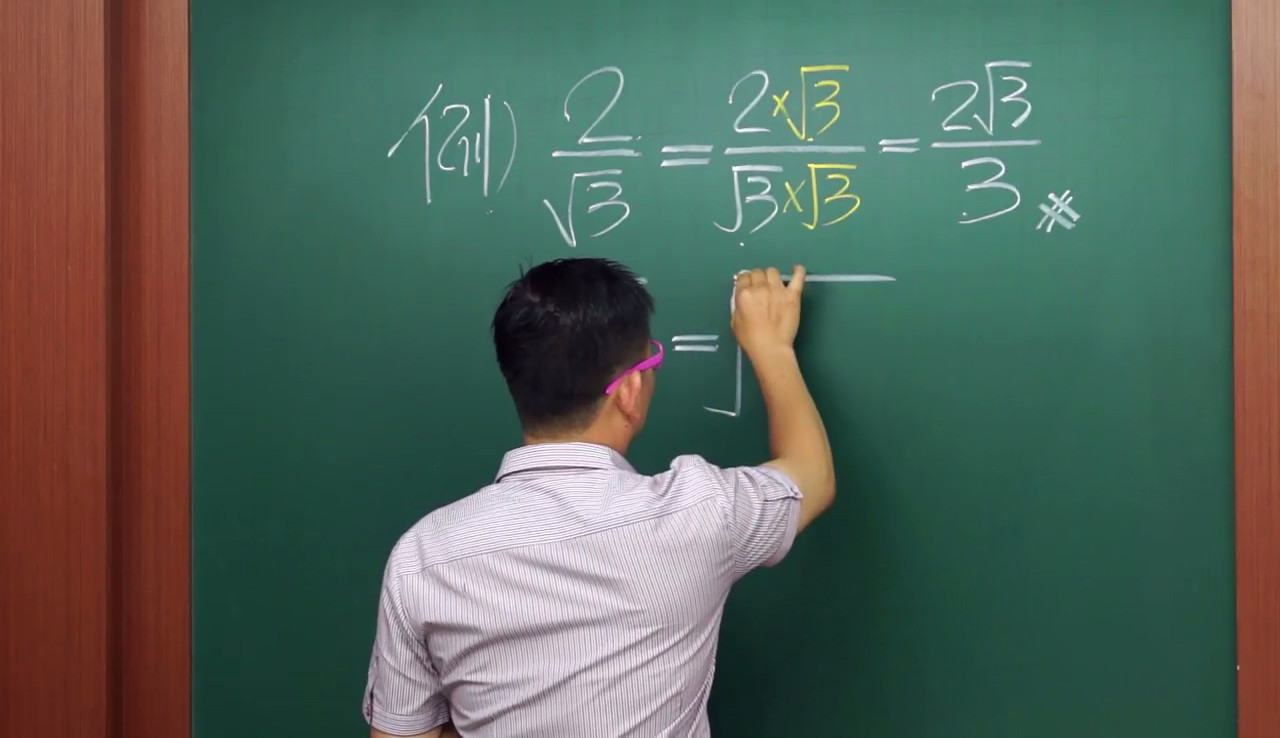 例) 2/√3 = 2×√3/√3×√3 = 2√3/3 ※
= √